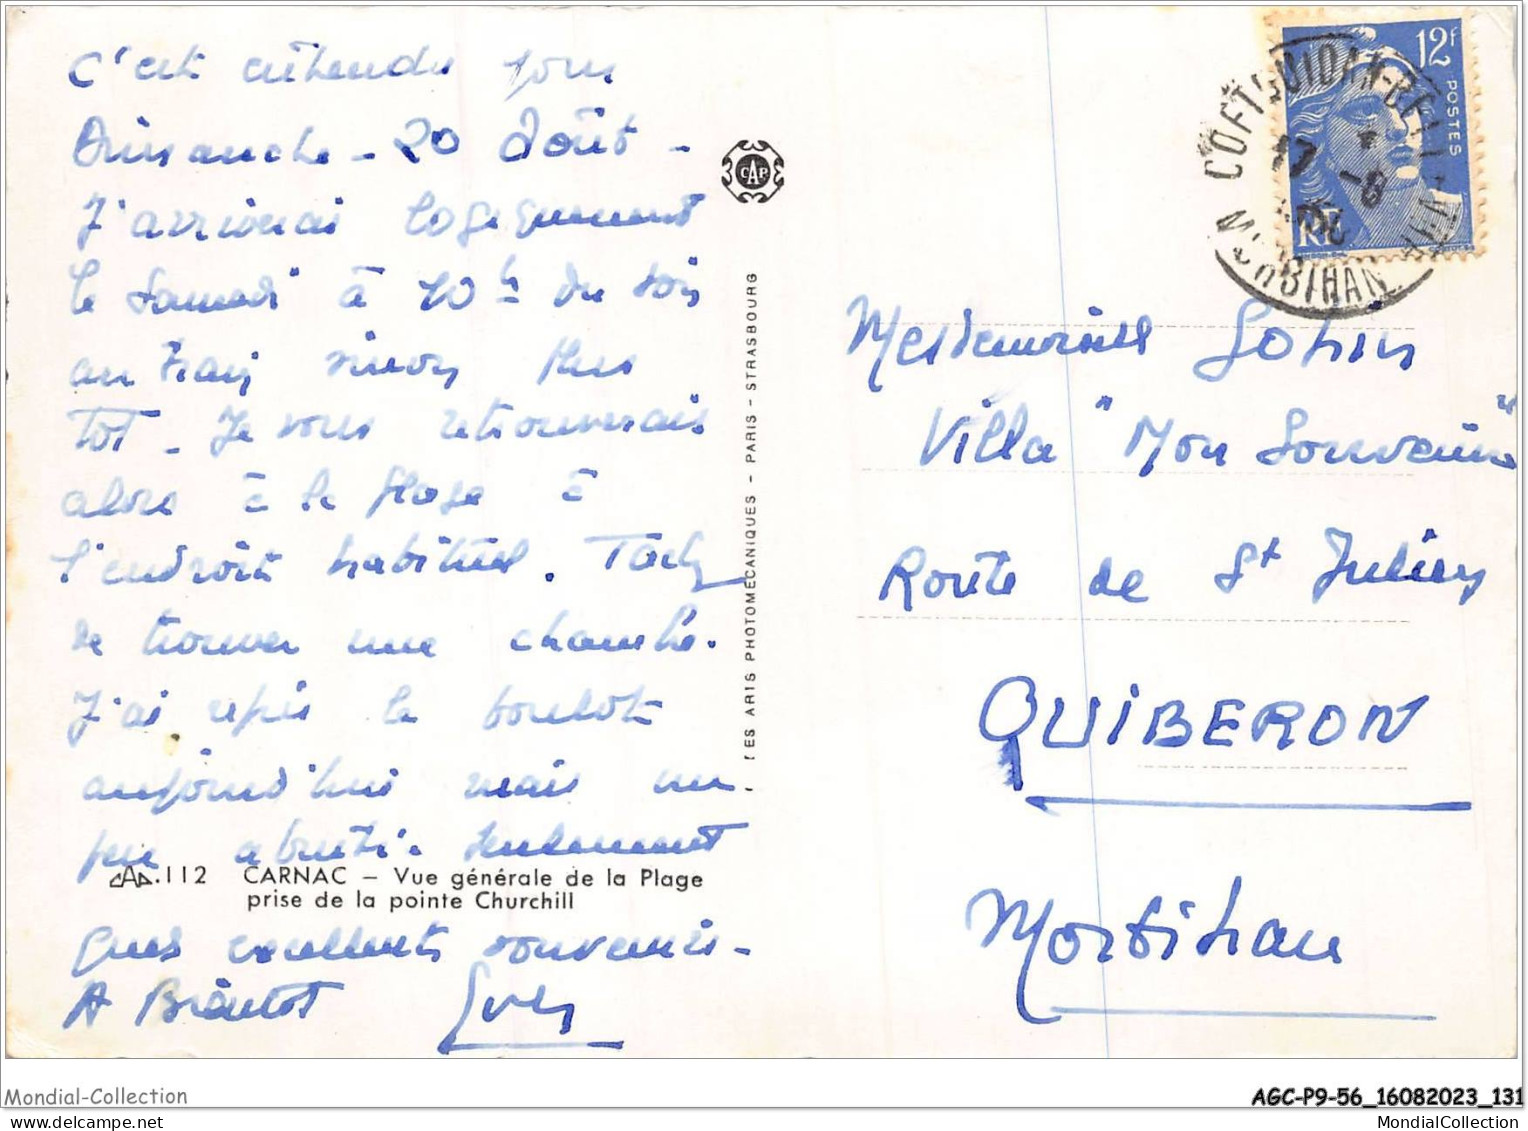 C'est entendu pour
Dimanche - 20 Août -
J'arriverai logiquement
le Samedi à 10h du soir
au train sinon plus
Tot - Je vous retrouverais
alors à la plage à
l'endroit habituel. Tachez
de trouver une chambre.
J'ai repris le boulot
aujourd'hui mais un
peu abruti. Seulement
CAP.112 CARNAC – Vue générale de la Plage
prise de la pointe Churchill
ques excellents souvenirs -
A Biéntot Yves
LES ARTS PHOTOMÉCANIQUES - PARIS - STRASBOURG
CAP
12F
POSTES
RF
COETQUIDAN-BELLEVUE
17 -8
MORBIHAN
Mesdemoiselles
Villa "Mon Souvenir"
Route de St Julien
QUIBERON
Morbihan
Mondial-Collection
AGC-P9-56_16082023_131
MondialCollection